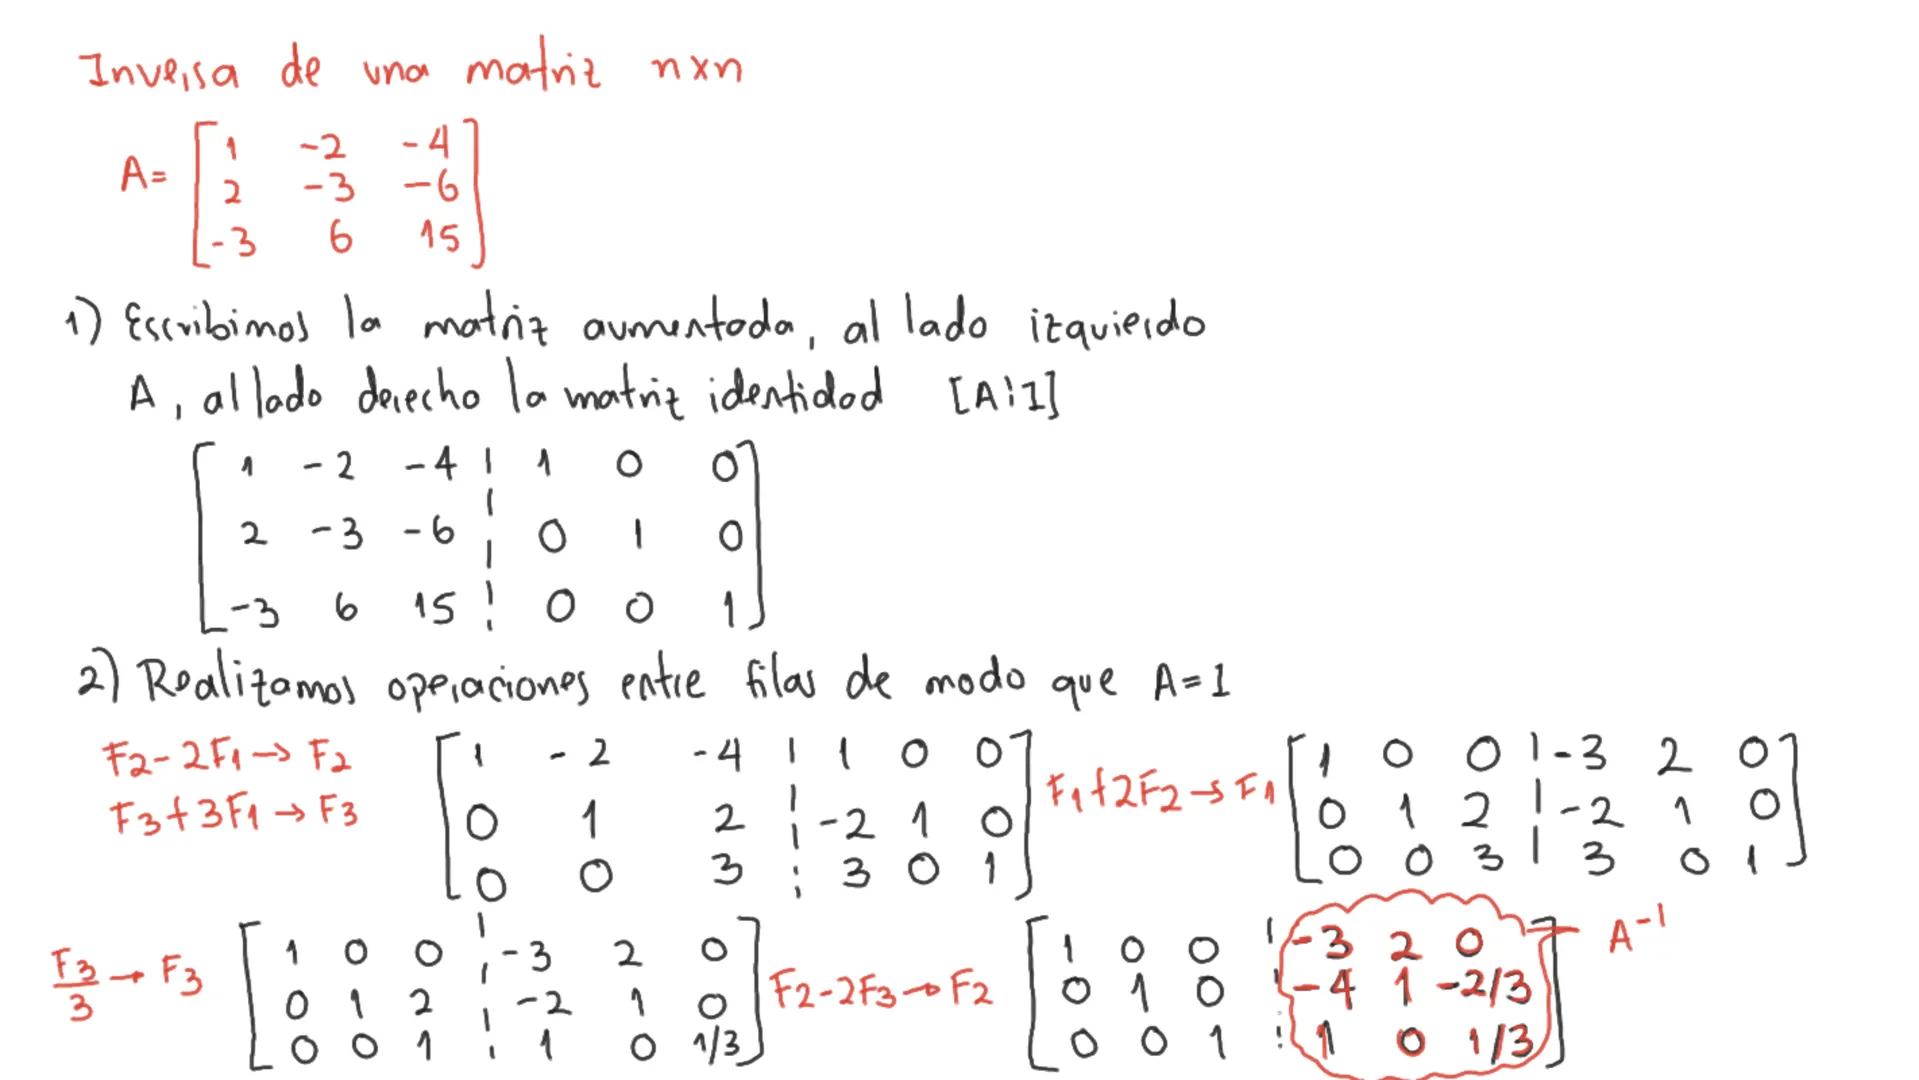 Inversa de una matriz nxn
A= [1 -2 -4
2 -3 -6
-3 6 15]
1) Escribimos la matriz aumentada, al lado izquierdo
A, al lado derecho la matriz identidad [A¦I]
[1 -2 -4 ¦ 1 0 0
2 -3 -6 ¦ 0 1 0
-3 6 15 ¦ 0 0 1]
2) Realizamos operaciones entre filas de modo que A=I
F2-2F1→F2
F3+3F1→F3
[1 -2 -4 ¦ 1 0 0
0 1 2 ¦ -2 1 0
0 0 3 ¦ 3 0 1]
F1+2F2→F1
[1 0 0 ¦ -3 2 0
0 1 2 ¦ -2 1 0
0 0 3 ¦ 3 0 1]
F3/3→F3
[1 0 0 ¦ -3 2 0
0 1 2 ¦ -2 1 0
0 0 1 ¦ 1 0 1/3]
F2-2F3→F2
[1 0 0 ¦ -3 2 0
0 1 0 ¦ -4 1 -2/3
0 0 1 ¦ 1 0 1/3]
A⁻¹